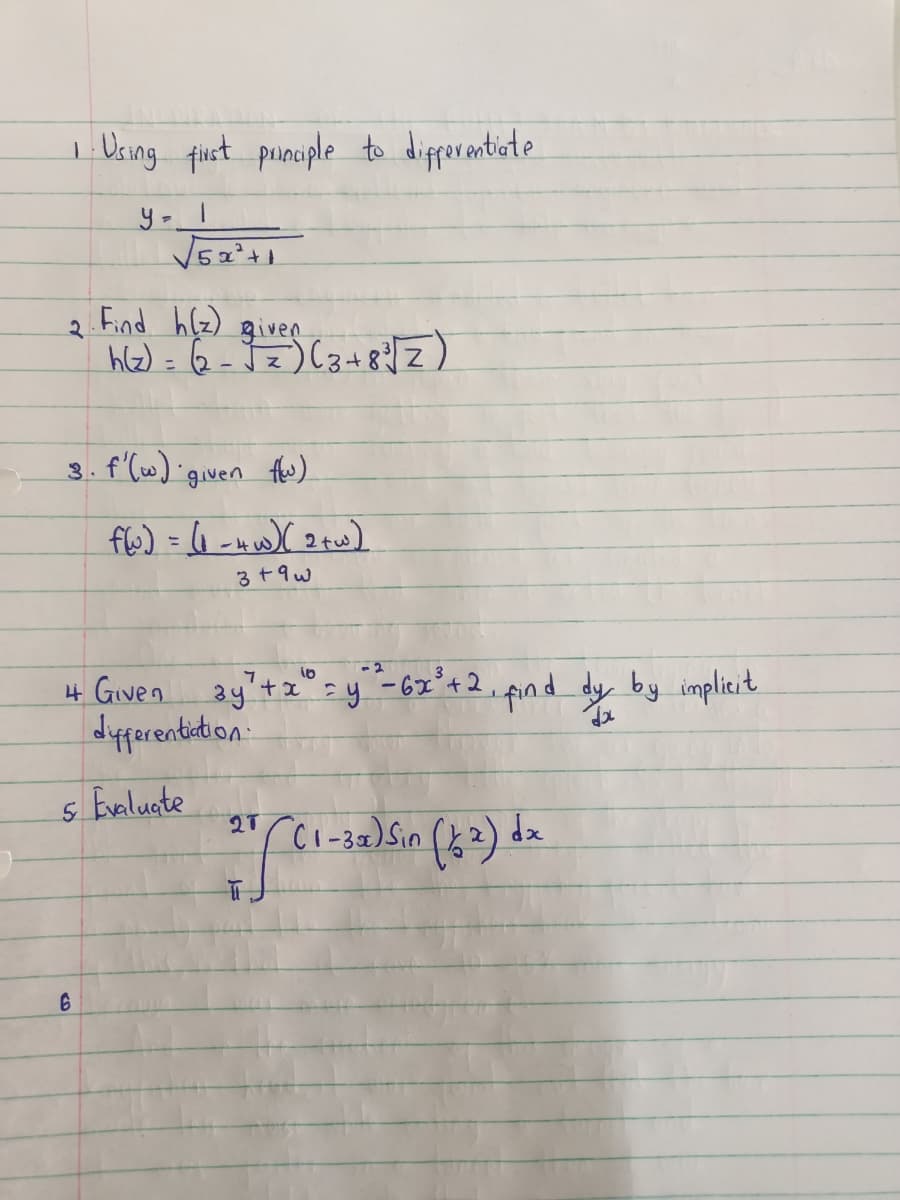 1. Using first principle to differentiate
y = 1
√5x²+1
2. Find h(z) given
h(z) = (2 - √z)(3+8∛z)
3. f'(w) given f(w)
f(w) = (1-4w)(2+w)
3+9w
4 Given 3y⁷+x¹⁰ = y⁻²-6x³+2, find dy/dx by implicit
differentiation.
5 Evaluate
2π
∫(1-3x)Sin ( x) dx
π
6